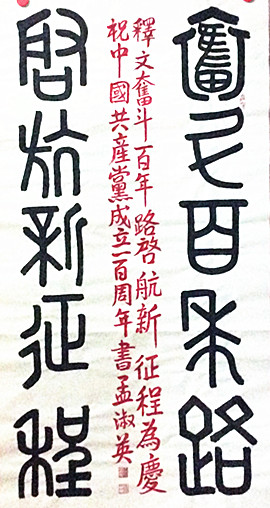 奮斗百年路
釋文奮斗百年路啓航新征程為慶
祝中國共産黨成立一百周年書孟淑英
啓航新征程